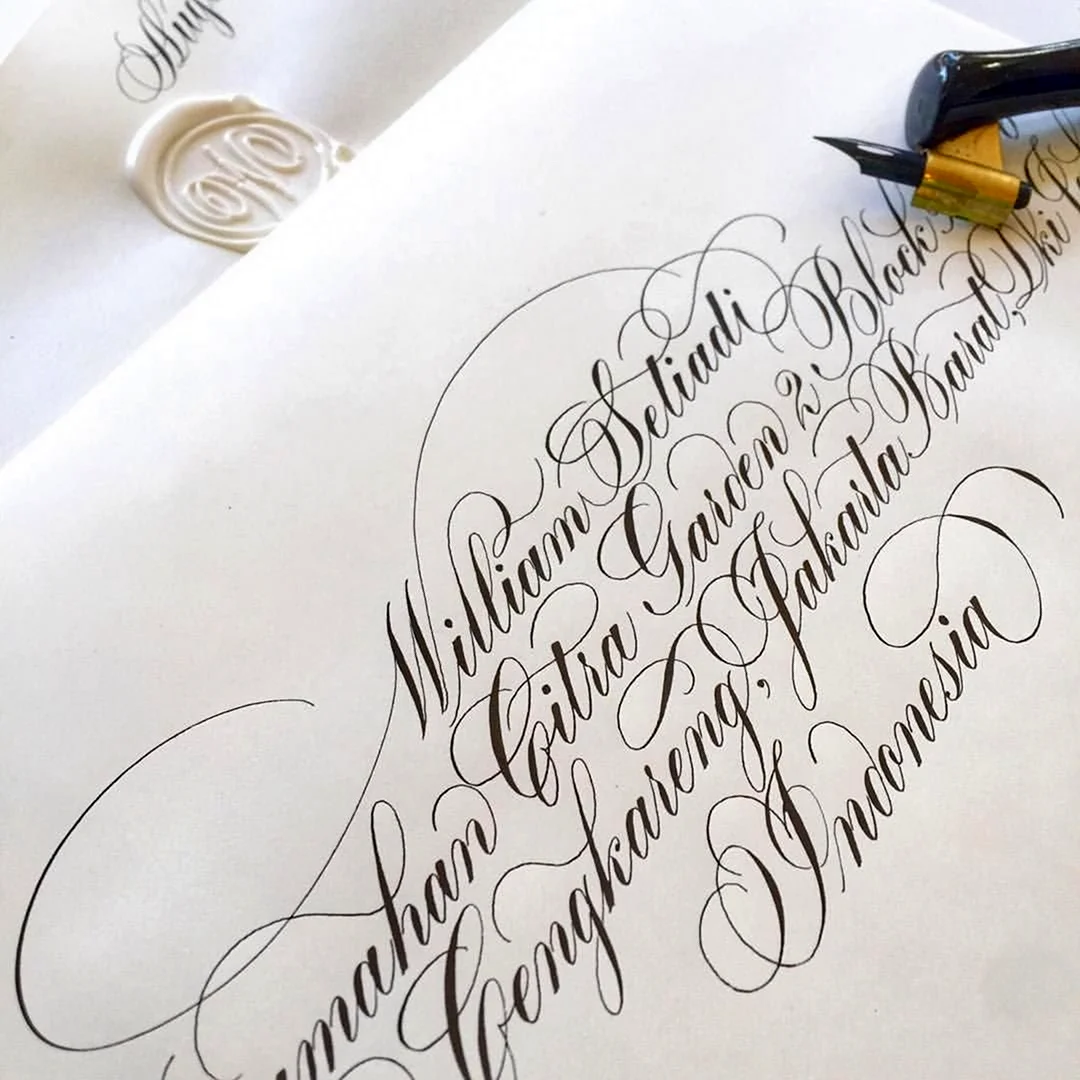 William Setiadi
Citra Garden 2, Block
Cengkareng, Jakarta Barat, Dki
Indonesia